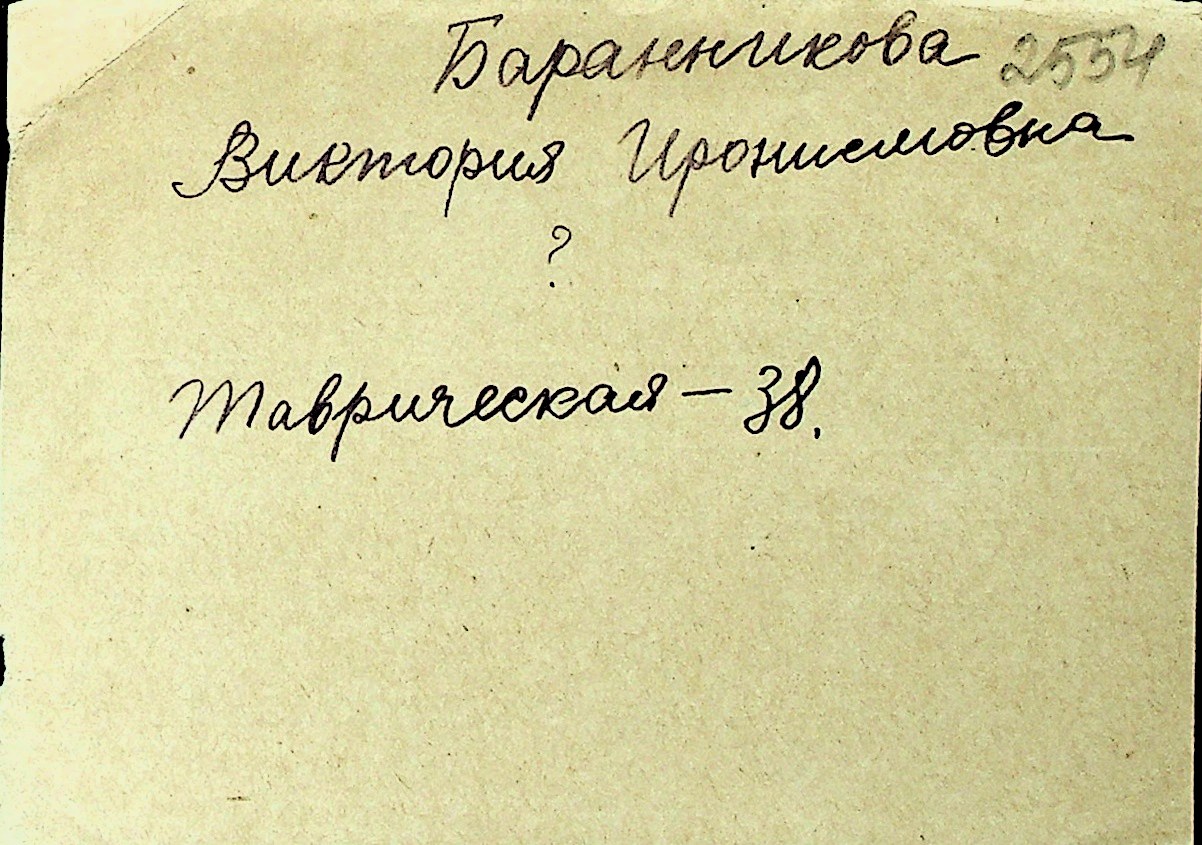 Баранникова 2554
Виктория Иронимовна
?
Таврическая – 38.